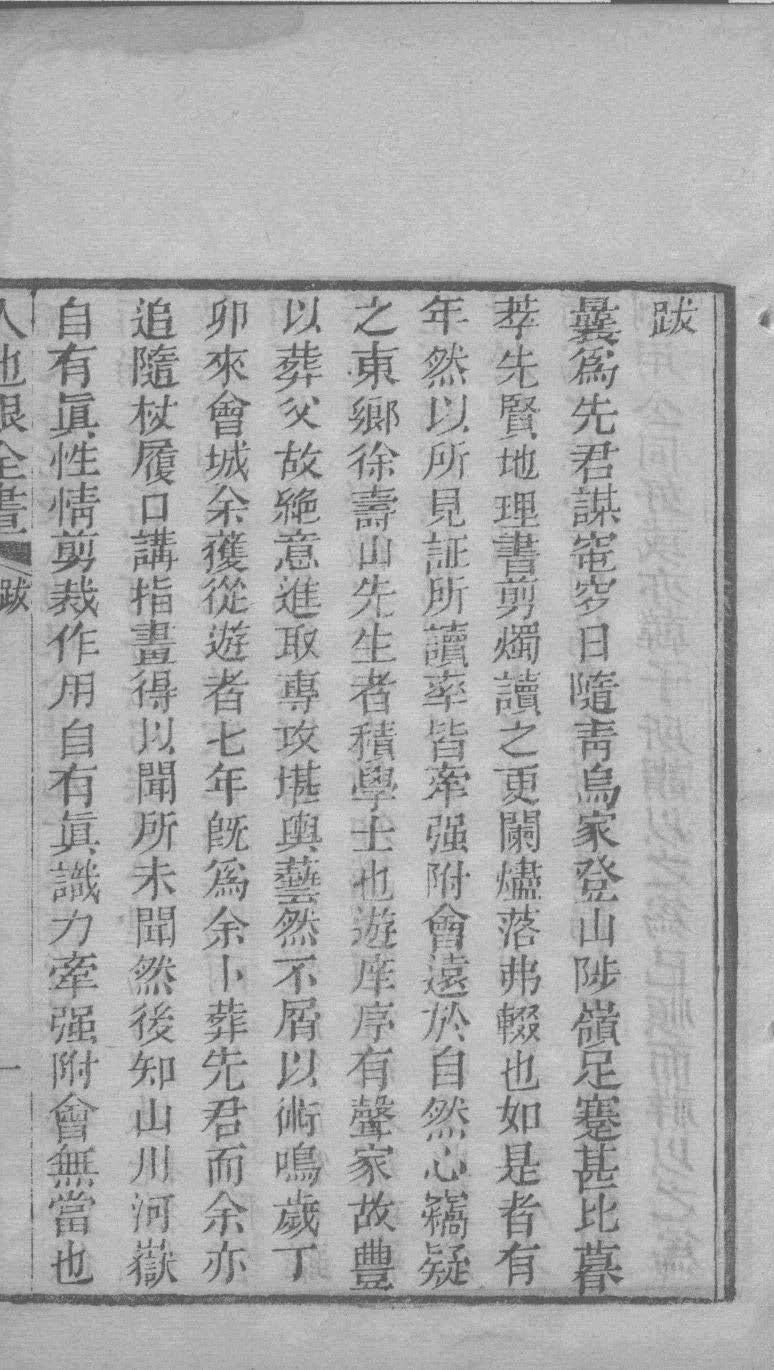 跋
曩為先君謀窀穸日隨靑烏家登山陟嶺足蹇甚比暮
萃先賢地理書剪燭讀之更闌燼落弗輟也如是者有
年然以所見証所讀率皆牽强附會遠於自然心竊疑
之東鄉徐壽山先生者積學士也遊庠序有聲家故豐
以葬父故絶意進取專攻堪輿藝然不屑以術鳴歲丁
卯來會城余獲從遊者七年旣為余卜葬先君而余亦
追隨杖履口講指畫得以聞所未聞然後知山川河嶽
自有眞性情剪裁作用自有眞識力牽强附會無當也
人地眼全書 跋 一